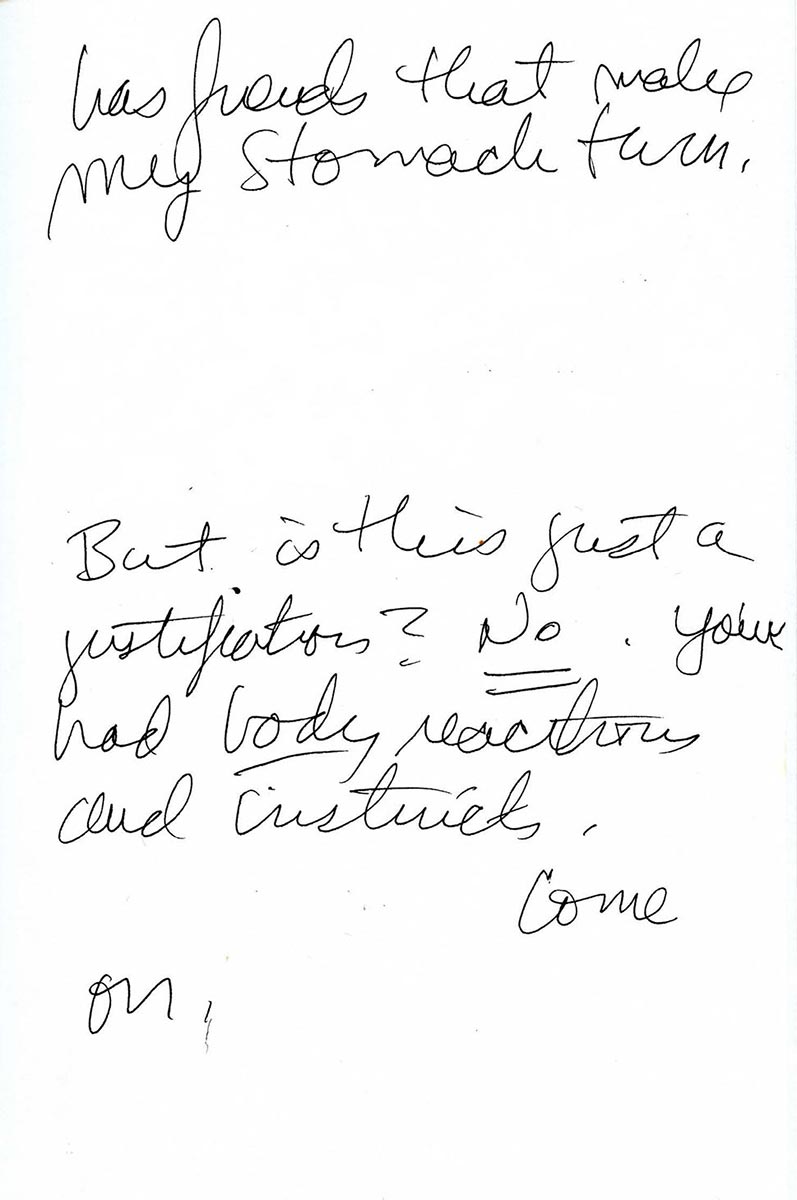 has friends that make
my stomach turn.
But is this just a
justification? No. You've
had body reactions
and instincts.
Come
on,